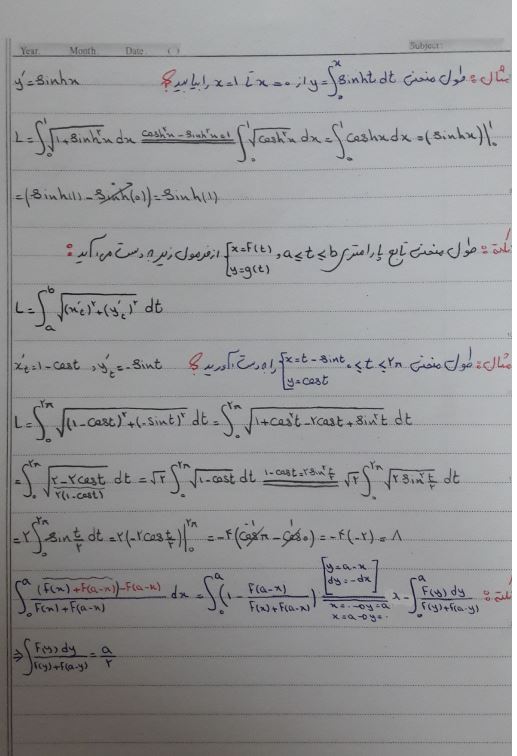 Year. Month. Date. ( ) Subject:
مثال: طول منحنی y=∫₀ˣ sinht dt از x=۰ تا x=۱ را بیابید؟
y′=sinhx
L=∫₀¹ √(1+sinh²x) dx cosh²x-sinh²x=1 ∫₀¹ √(cosh²x) dx=∫₀¹ coshx dx=(sinhx)|₀¹
=(sinh(1)-sinh(0))=sinh(1)
نکته: طول منحنی تابع پارامتری a≤t≤b و {x=f(t) y=g(t) از فرمول زیر بدست می‌آید:
L=∫ₐᵇ √((x′t)²+(y′t)²) dt
مثال: طول منحنی ۰≤t≤۲π {x=t-sint y=cost را بدست آورید؟
x′t=1-cost, y′t=-sint
L=∫₀^۲π √((1-cost)²+(-sint)²) dt=∫₀^۲π √(1+cos²t-۲cost+sin²t) dt
=∫₀^۲π √(۲-۲cost) dt=√۲∫₀^۲π √(1-cost) dt 1-cost=۲sin²t/۲ √۲∫₀^۲π √(۲sin²t/۲) dt
۲(1-cost)
=۲∫₀^۲π sin t/۲ dt=۲(-۲cos t/۲)|₀^۲π=-۴(cosπ-cos0)=-۴(-۲)=۸
نکته: ∫₀ᵃ ((f(x)+f(a-x))-f(a-x))/(f(x)+f(a-x)) dx=∫₀ᵃ (1-f(a-x)/(f(x)+f(a-x))) [y=a-x dy=-dx] x=۰→y=a x=a→y=۰ x-∫₀ᵃ f(y)dy/(f(y)+f(a-y))
⇒∫ f(y)dy/(f(y)+f(a-y))=a/۲